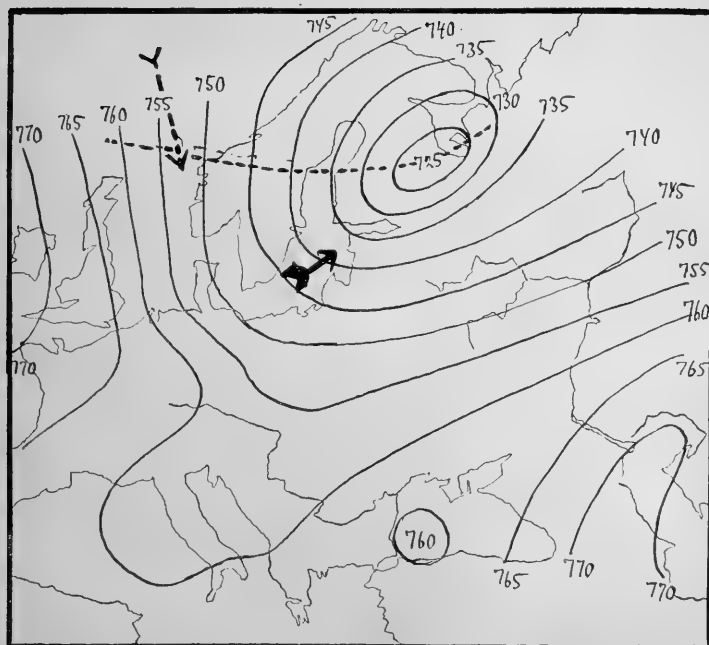 745
740
735
730
735
750
755
760
765
770
725
740
745
750
755
760
765
770
760
765
770
770